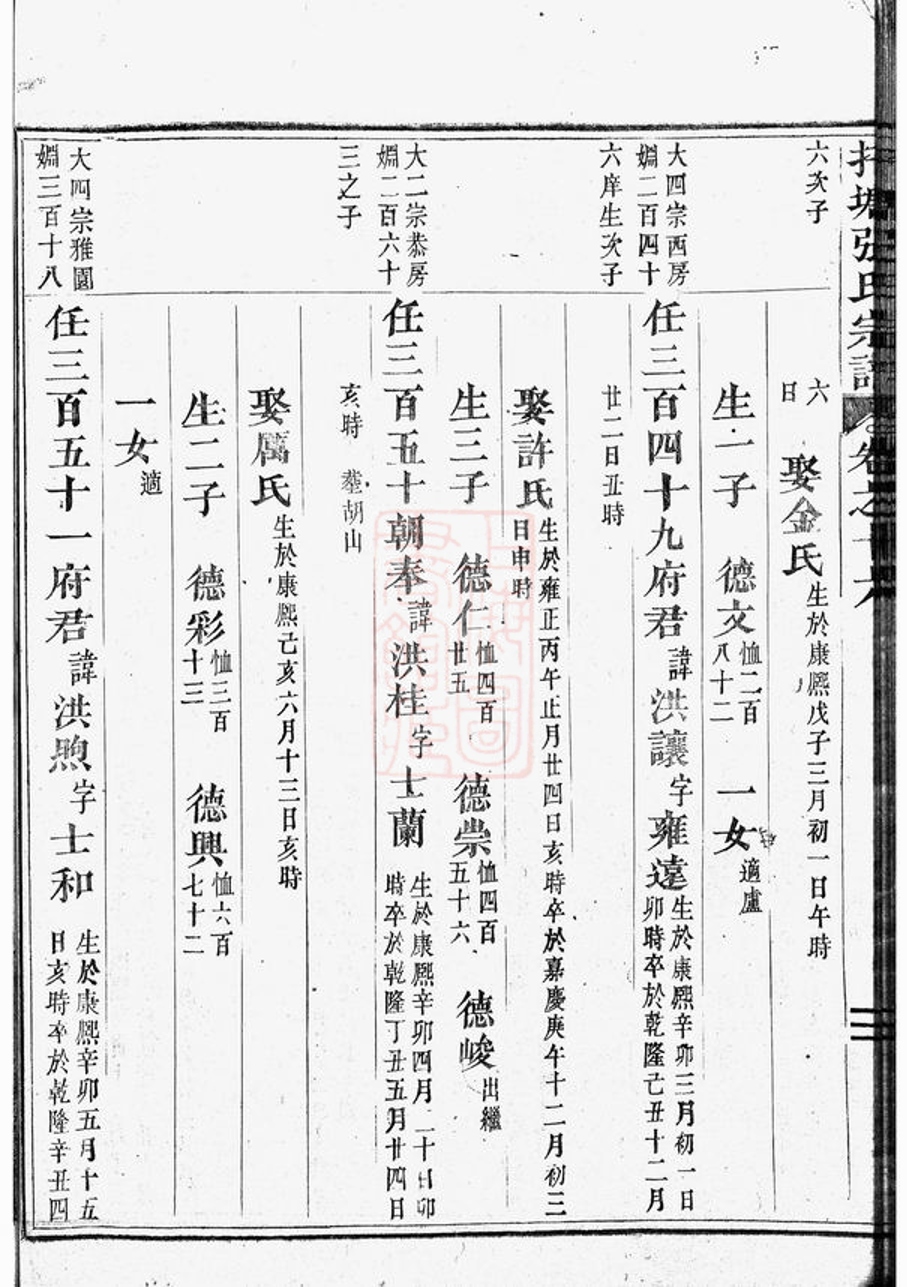 托塘張氏宗譜 卷之十六
六次子
六
日
娶金氏 生於康熈戊子三月初一日午時
生一子 德文 恤二百八十二 一女 適盧
大四宗西房
嫺二百四十
六庠生次子
任三百四十九府君 諱洪讓 字雍遠 生於康熈辛卯三月初一日
卯時卒於乾隆己丑十二月
廿二日丑時
娶許氏 生於雍正丙午正月廿四日亥時卒於嘉慶庚午十二月初三
日申時
生三子 德仁 恤四百廿五 德崇 恤四百五十六 德峻 出繼
大二宗恭房
嫺二百六十
三之子
任三百五十朝奉 諱洪桂 字士蘭 生於康熈辛卯四月二十日卯
時卒於乾隆丁丑五月廿四日
亥時 塟胡山
娶厲氏 生於康熈己亥六月十三日亥時
生二子 德彩 恤三百十三 德興 恤六百七十二
一女 適
大四宗雅園
嫺三百十八
任三百五十一府君 諱洪煦 字士和 生於康熈辛卯五月十五
日亥時卒於乾隆辛丑四